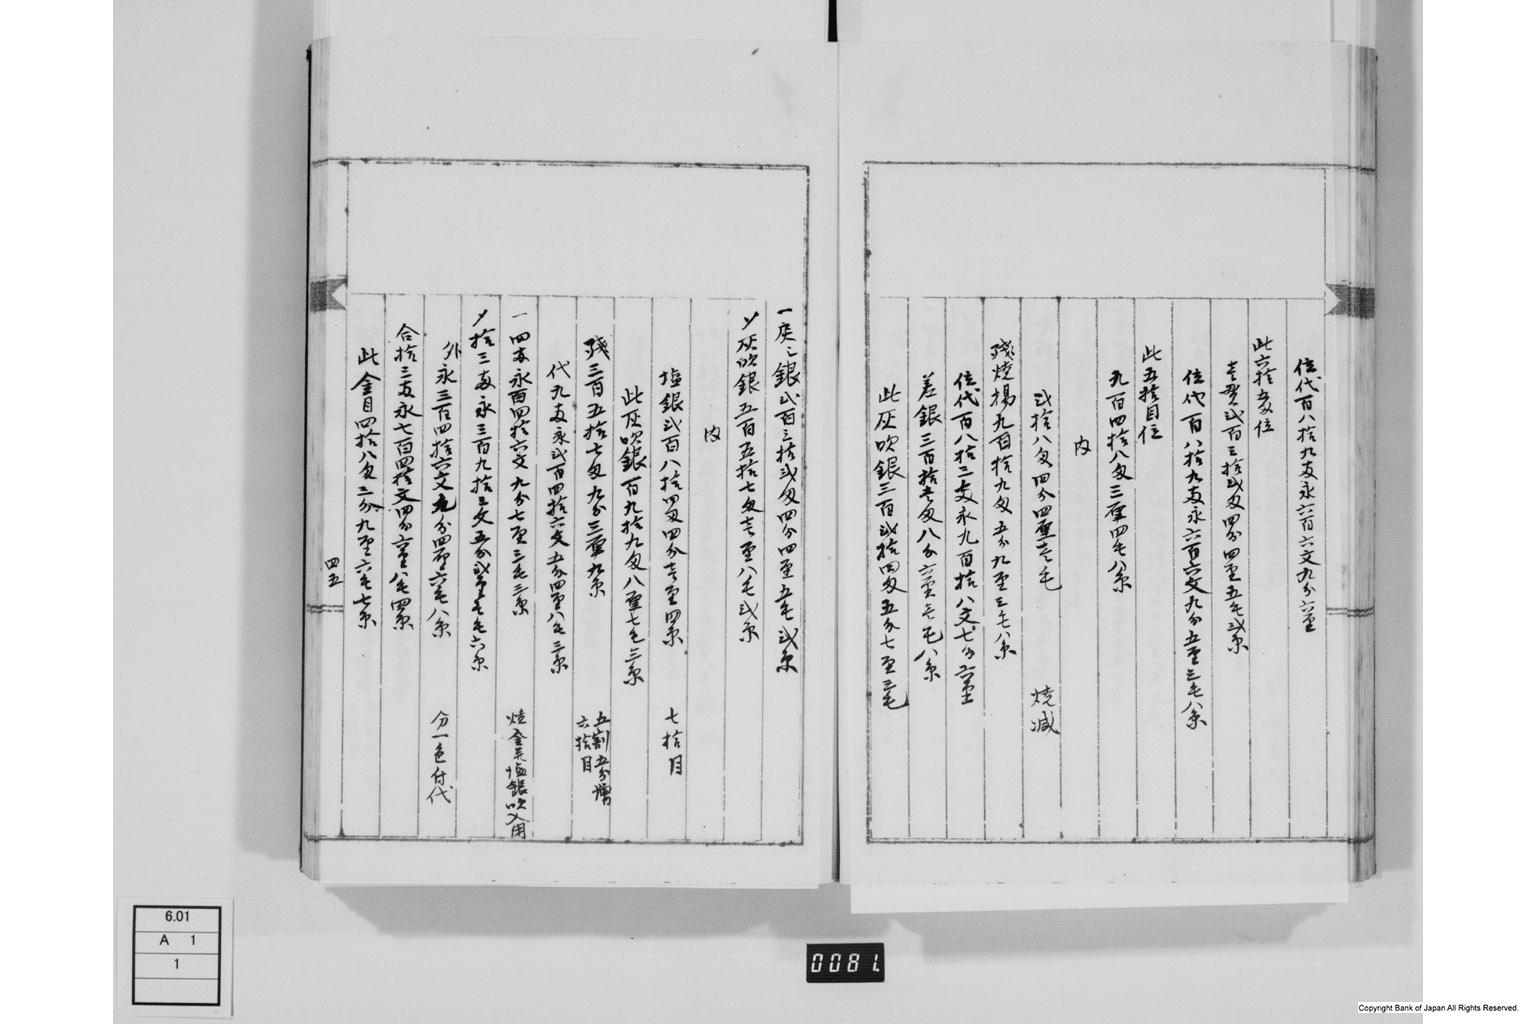 位代百八拾九両永六百六文九分六厘
此六拾五匁位
壱貫弐百三拾弐匁四分四厘五毛弐糸
位代百八拾九両永六百六文九分五厘三毛八糸
此五拾目位
九百四拾八匁三厘四毛八糸
内
弐拾八匁四分四厘壱毛 焼減
残焼揚九百拾九匁五分九厘三毛八糸
位代百八拾三両永九百拾八文七分六厘
差銀三百拾壱匁八分六厘壱毛八糸
此灰吹銀三百弐拾四匁五分七厘三毛
一戻之銀弐百三拾弐匁四分四厘五毛弐糸
〆灰吹銀五百五拾七匁壱厘八毛弐糸
内
塩銀弐百八拾四匁四分壱厘四糸 七拾目
此灰吹銀百九拾九匁八厘七毛三糸
残三百五拾七匁九分三厘九糸 五割五分増 六拾目
代九両永弐百四拾六文五分四厘八毛三糸
一四両永百四拾六文九分七厘三毛三糸 焼金并塩銀吹入用
〆拾三両永三百九拾三文五分弐厘壱毛六糸
外永三百四拾六文九分四厘六毛八糸 分一色付代
合拾三両永七百四拾文四分六厘八毛四糸
此金目四拾八匁二分九厘六毛七糸
四五
6.01
A 1
1
0081.
Copyright Bank of Japan All Rights Reserved.